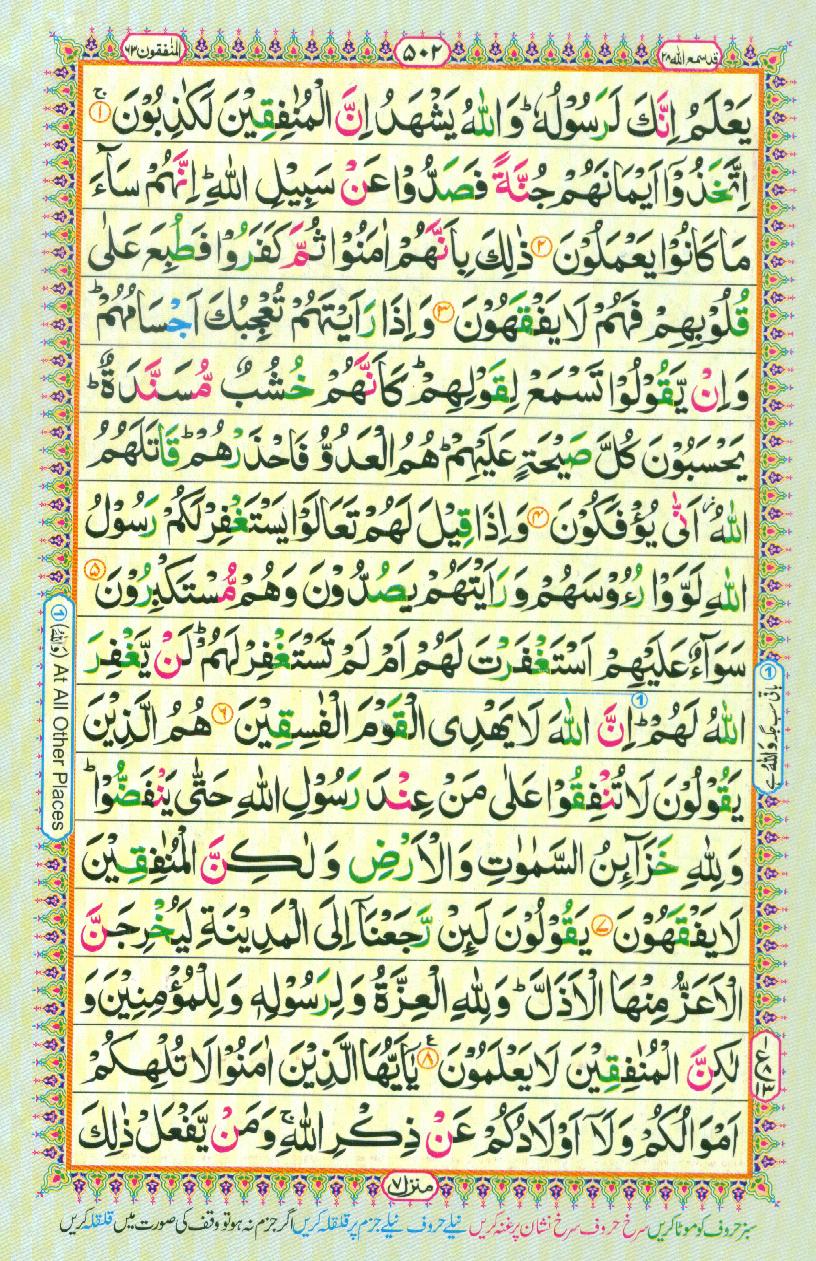 قد سمع الله ۲۸
۵۰۲
المنٰفقون ۶۳
يَعْلَمُ اِنَّكَ لَرَسُوْلُهٗ ؕ وَاللّٰهُ يَشْهَدُ اِنَّ الْمُنٰفِقِيْنَ لَكٰذِبُوْنَ ۚ ۝۱
اِتَّخَذُوْۤا اَيْمَانَهُمْ جُنَّةً فَصَدُّوْا عَنْ سَبِيْلِ اللّٰهِ ؕ اِنَّهُمْ سَآءَ
مَا كَانُوْا يَعْمَلُوْنَ ۝۲ ذٰلِكَ بِاَنَّهُمْ اٰمَنُوْا ثُمَّ كَفَرُوْا فَطُبِعَ عَلٰى
قُلُوْبِهِمْ فَهُمْ لَا يَفْقَهُوْنَ ۝۳ وَاِذَا رَاَيْتَهُمْ تُعْجِبُكَ اَجْسَامُهُمْ ؕ
وَاِنْ يَّقُوْلُوْا تَسْمَعْ لِقَوْلِهِمْ ؕ كَاَنَّهُمْ خُشُبٌ مُّسَنَّدَةٌ ؕ
يَحْسَبُوْنَ كُلَّ صَيْحَةٍ عَلَيْهِمْ ؕ هُمُ الْعَدُوُّ فَاحْذَرْهُمْ ؕ قَاتَلَهُمُ
اللّٰهُ ؗ اَنّٰى يُؤْفَكُوْنَ ۝۴ وَاِذَا قِيْلَ لَهُمْ تَعَالَوْا يَسْتَغْفِرْ لَكُمْ رَسُوْلُ
اللّٰهِ لَوَّوْا رُءُوْسَهُمْ وَرَاَيْتَهُمْ يَصُدُّوْنَ وَهُمْ مُّسْتَكْبِرُوْنَ ۝۵
سَوَآءٌ عَلَيْهِمْ اَسْتَغْفَرْتَ لَهُمْ اَمْ لَمْ تَسْتَغْفِرْ لَهُمْ ؕ لَنْ يَّغْفِرَ
اللّٰهُ لَهُمْ ؕ اِنَّ اللّٰهَ لَا يَهْدِى الْقَوْمَ الْفٰسِقِيْنَ ۝۶ هُمُ الَّذِيْنَ
يَقُوْلُوْنَ لَا تُنْفِقُوْا عَلٰى مَنْ عِنْدَ رَسُوْلِ اللّٰهِ حَتّٰى يَنْفَضُّوْا ؕ
وَلِلّٰهِ خَزَآئِنُ السَّمٰوٰتِ وَالْاَرْضِ وَلٰكِنَّ الْمُنٰفِقِيْنَ
لَا يَفْقَهُوْنَ ۝۷ يَقُوْلُوْنَ لَئِنْ رَّجَعْنَاۤ اِلَى الْمَدِيْنَةِ لَيُخْرِجَنَّ
الْاَعَزُّ مِنْهَا الْاَذَلَّ ؕ وَلِلّٰهِ الْعِزَّةُ وَلِرَسُوْلِهٖ وَلِلْمُؤْمِنِيْنَ وَ
لٰكِنَّ الْمُنٰفِقِيْنَ لَا يَعْلَمُوْنَ ۝۸ يٰۤاَيُّهَا الَّذِيْنَ اٰمَنُوْا لَا تُلْهِكُمْ
اَمْوَالُكُمْ وَلَاۤ اَوْلَادُكُمْ عَنْ ذِكْرِ اللّٰهِ ۚ وَمَنْ يَّفْعَلْ ذٰلِكَ
① (وَاللّٰهُ) At All Other Places
منزل ۷
سبز حروف کو موٹا کریں سرخ حروف سرخ نشان پر غنہ کریں نیلے حروف نیلے جزم پر قلقلہ کریں اگر جزم نہ ہو تو وقف کی صورت میں قلقلہ کریں